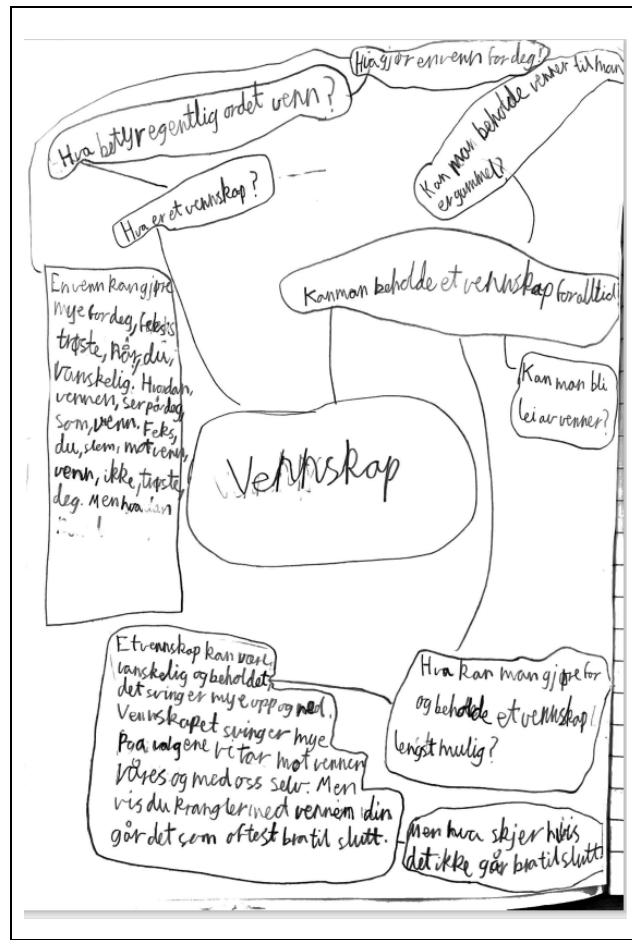 Hva gjør en venn for deg?
Hva betyr egentlig ordet venn?
Hva er et vennskap?
Kan man beholde venner til man
er gammel?
Kan man beholde et vennskap for alltid
Kan man bli
lei av venner?
En venn kan gjøre
mye for deg, feks
trøste, når, du,
vanskelig. Hvordan,
vennen, ser på deg
som, venn. Feks,
du, slem, mot venn,
venn, ikke, trøste,
deg. Men hvordan
Vennskap
Et vennskap kan være
vanskelig og beholdet,
det svinger mye opp og ned.
Vennskapet svinger mye
Paa valgene vi tar mot vennen
våres og med oss selv. Men
vis du krangler med vennem din
går det som oftest bra til slutt.
Hva kan man gjøre for
og beholde et vennskap
lengst mulig?
Men hva skjer hvis
det ikke går bra til slutt